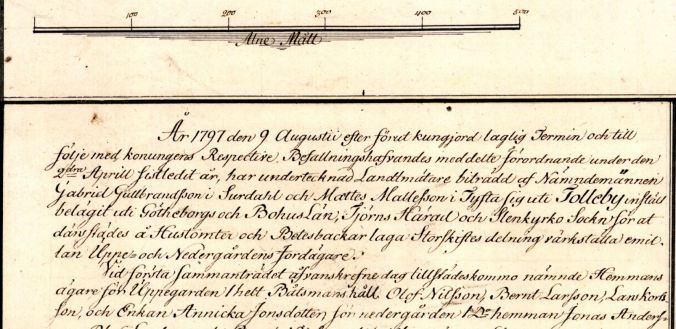 100 200 300 400 500
Alne Mått
År 1797 den 9 Augustii efter förut kungjord laglig Termin och till
följe med konungens Respective Befallningshafvandes meddelte förordnande under den
2dra Aprill sistledit år, har undertecknad Landtmätare biträdd af Nämndemännen
Gabriel Gullbrandsson i Surdahl och Mattes Mattesson i Tyfta sig uti Tolleby infunnit
belägit uti Götheborgs och Bohus Län, Tjörns Härad och Stenkyrko Sockn för at
därstädes å Hustomter och Betesbackar laga Storskiftes delning värkställa emil-
lan Uppe- och Nedergårdens Jordägare.
Vid första Sammanträdet ofvanskrefne dag tillstädeskommo nämnde Hemmans
ägare för Uppegården 1 helt Båtsmans håll Olof Nilsson, Bernt Larsson, Lars
son, och Enkan Annicka Jonsdotter, för nedergården hemman Jonas Anders-